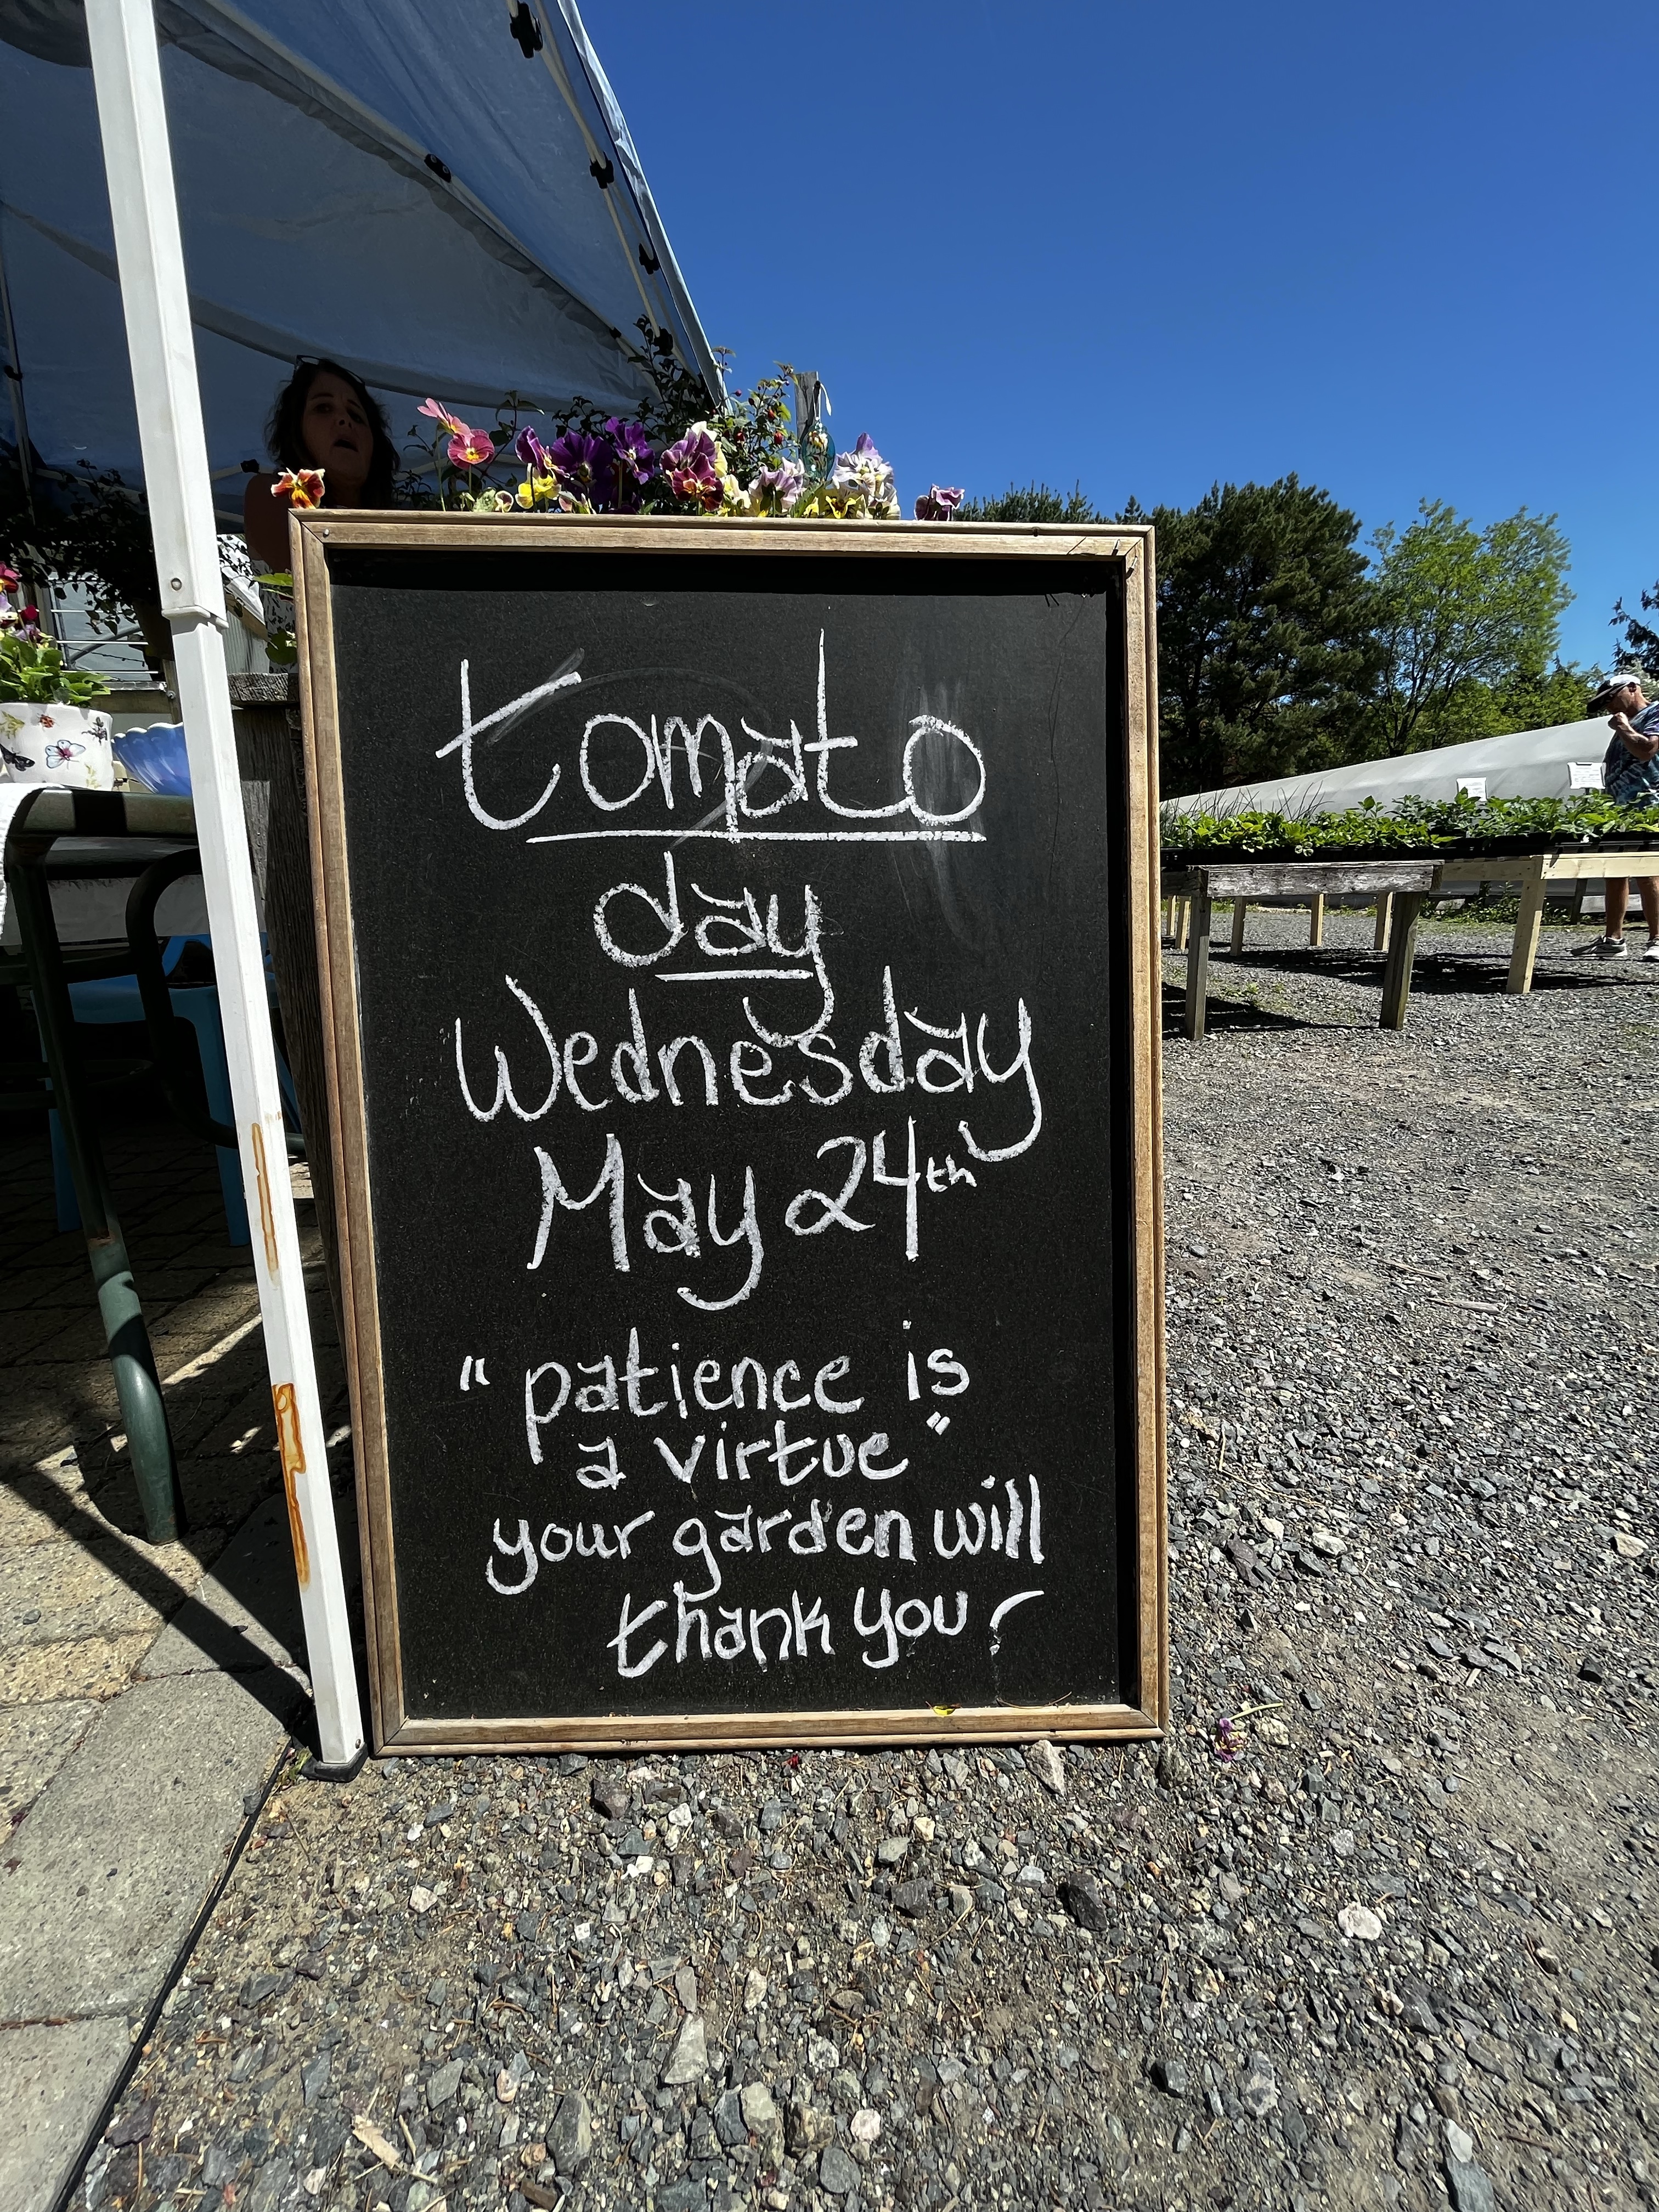 tomato
day
Wednesday
May 24th
"patience is
a virtue"
your garden will
thank you